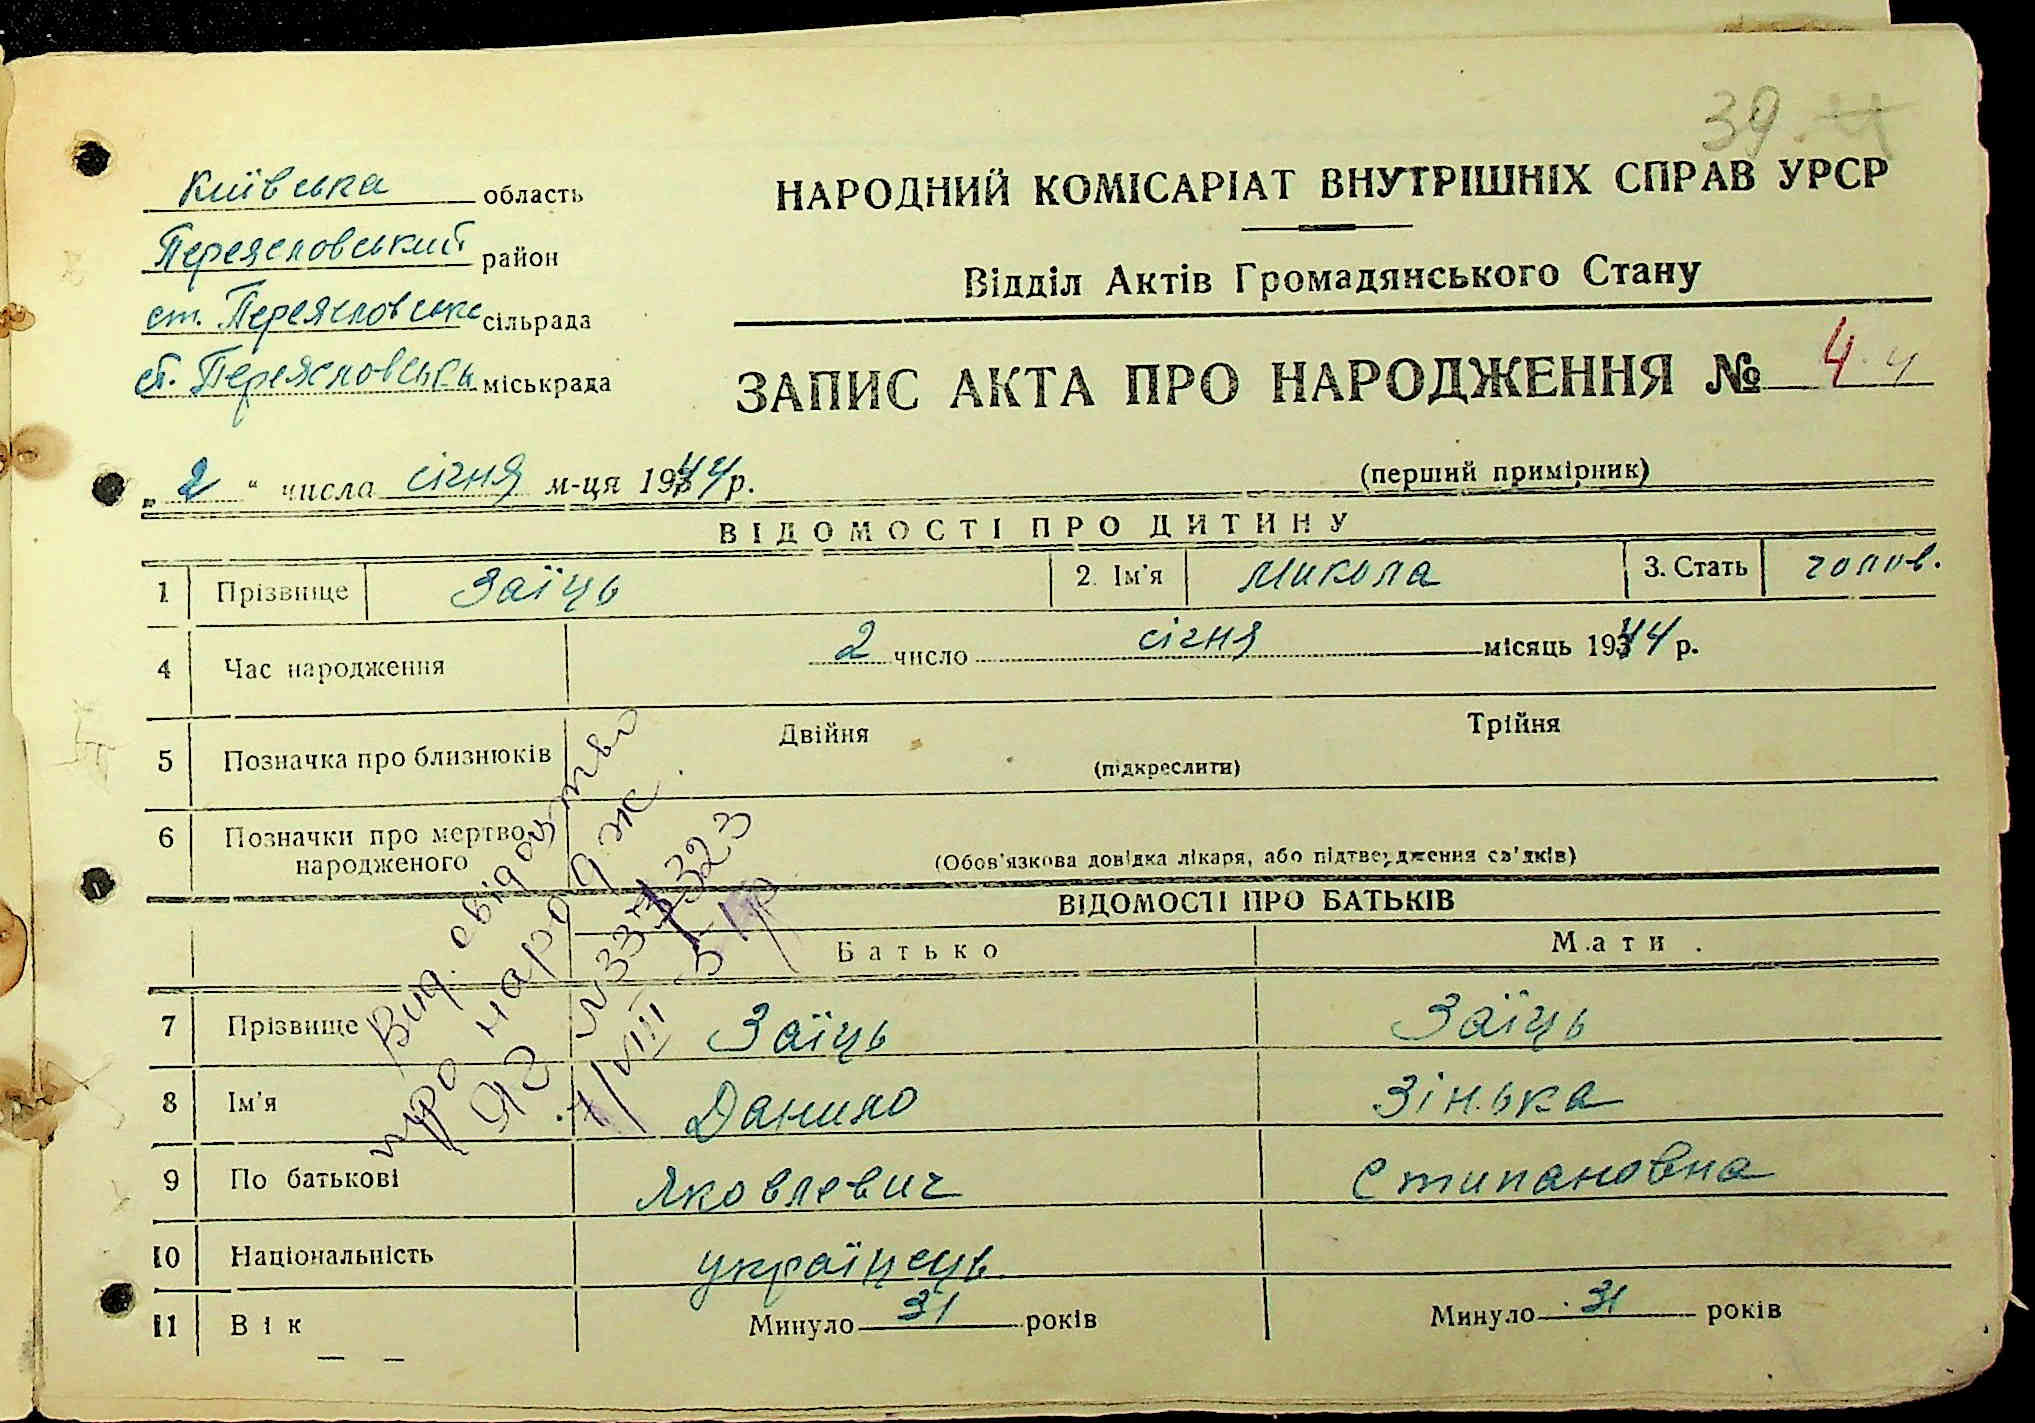 39.
Київська область
Переясловський район
ст. Переясловська сільрада
ст. Переясловська міськрада
НАРОДНИЙ КОМІСАРІАТ ВНУТРІШНІХ СПРАВ УРСР
Відділ Актів Громадянського Стану
ЗАПИС АКТА ПРО НАРОДЖЕННЯ № 4. 4
„ 2 “ числа січня м-ця 1944 р.
(перший примірник)
ВІДОМОСТІ ПРО ДИТИНУ
1 Прізвище Заїць 2. Ім'я Микола 3. Стать чолов.
4 Час народження 2 число січня місяць 1944 р.
5 Позначка про близнюків Двійня Трійня
(підкреслити)
6 Позначки про мертво-
народженого
(Обов'язкова довідка лікаря, або підтвердження св'дків)
ВІДОМОСТІ ПРО БАТЬКІВ
Батько Мати
7 Прізвище Заїць Заїць
8 Ім'я Данило Зінька
9 По батькові Яковлевич Стипановна
10 Національність українець
11 Вік Минуло 31 років Минуло 31 років
Вид. свідоцтво
про нарордж.